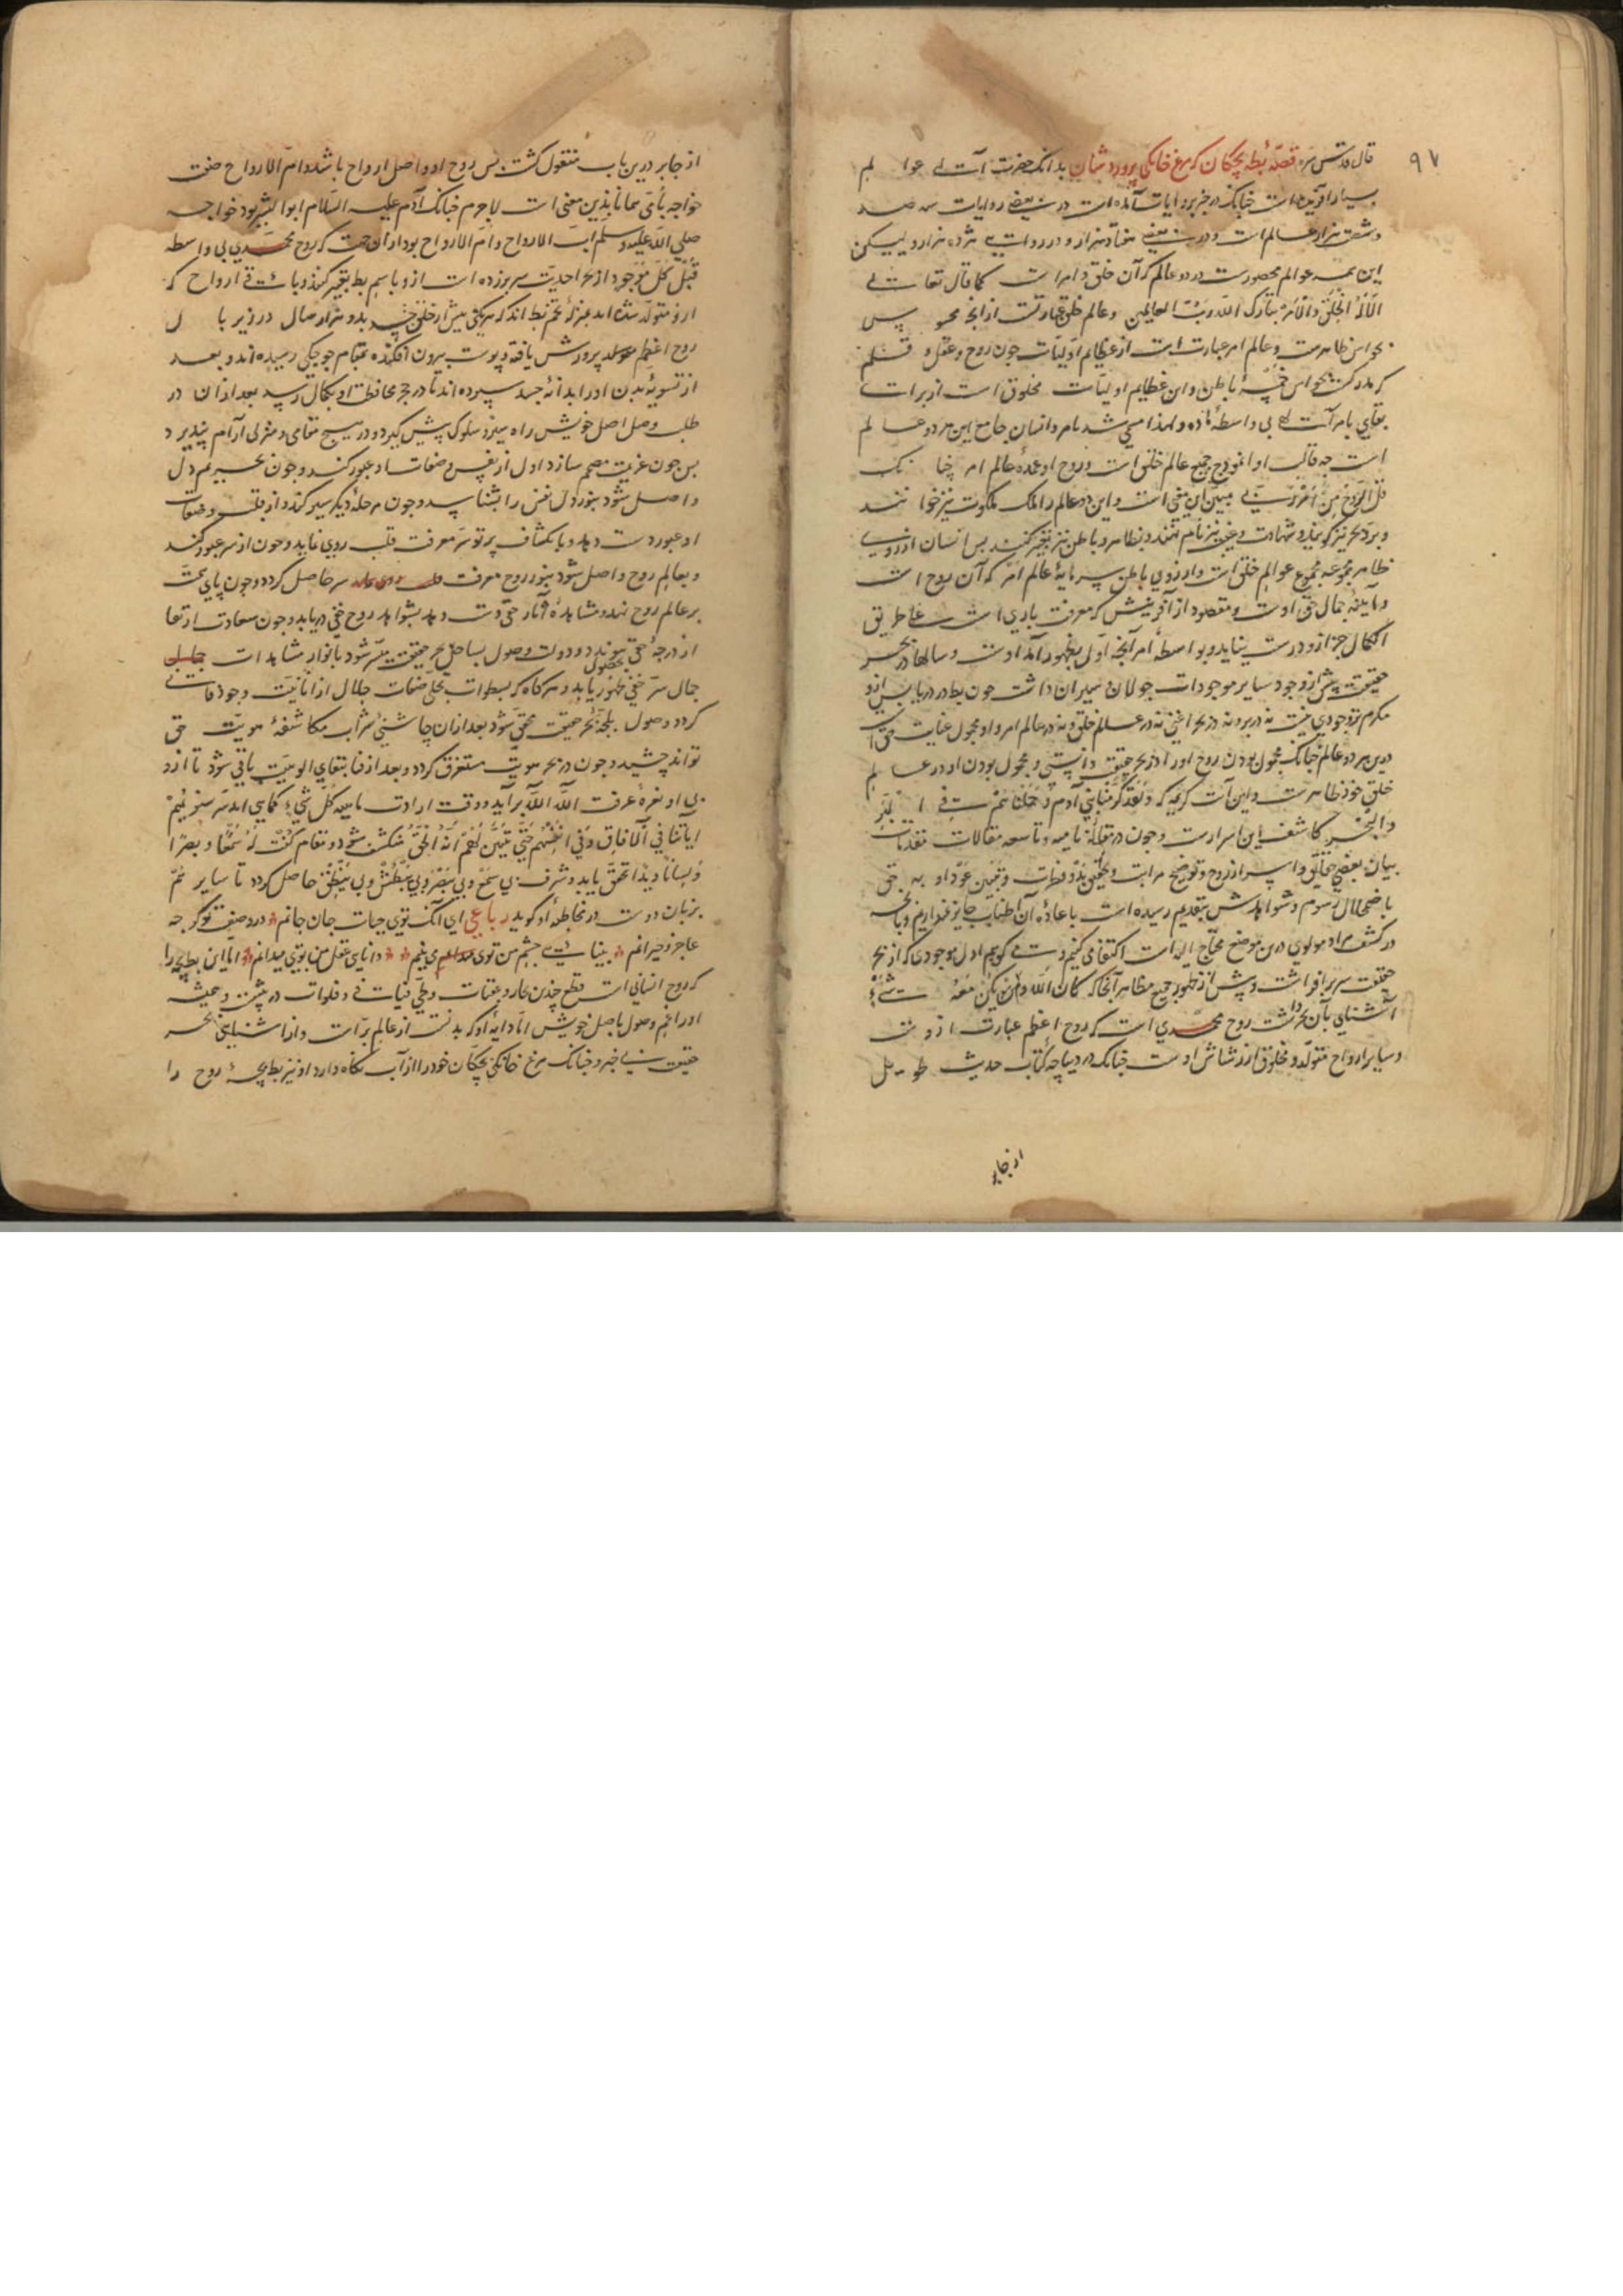 ۹۷
قال قدس سره قصّهٔ بط بچگان که مرغ خانگی پرورد شان بدانک حضرت عوالم
بسیار آفریده است چنانک در خبر و روایات آمده است در بعضی روایات سه صد
و شصت هزار عالم است و در بعضی هفتاد هزار و در روایت هژده هزار ولیکن
این همه عوالم محصورست در دو عالم که آن خلق و امر است کما قال تعالی
اَلَا لَهُ الْخَلْقُ وَالْاَمْرُ تَبَارَکَ اللّه رَبُّ العالمین و عالم خلق عبارتست از آنچ محسوس
بحواس ظاهرست و عالم امر عبارتست از عظایم اوّلیّات چون روح و عقل و قلم
که مدرکست بحواس باطن و این عظایم اولیّات مخلوق است از برای
بقای بامر بی واسطهٔ ماده و لهذا مسمی شد بامر و انسان جامع این هر دو عالم
است چه قالب او انموذج جمیع عالم خلق است و روح او عمدهٔ عالم امر چنانک
قل الرّوح مِن اَمْرِ رَبّی مبین این معنی است و این دو عالم را ملک ملکوت نیز خوانند
و بر و بحر نیز گویند و شهادت و غیب نیز نام نهند و بظاهر و باطن نیز تعبیر کنند پس انسان از روی
ظاهر مجموعهٔ مجموع عوالم خلق است و از روی باطن سرمایهٔ عالم امر که آن روح است
و آیینهٔ جمال حق اوست و مقصود از آفرینش که معرفت باری است علی طریق
الکمال جز از و درست نیاید و بواسطه امر آنچه اول بظهور آمد اوست و سالها در بحر
حقیقت پیش از وجود سایر موجودات جولان و سیران داشت چون بط در دریا پس ازو
مکرم تر وجودی نیست نه در بر و نه در بحر اعنی نه در عالم خلق و نه در عالم امر و او محمول عنایت حق است
درین هر دو عالم چنانک محمول بودن روح او را در بحر حقیقت دانستی و محمول بودن او در عالم
خلق خود ظاهرست و این آیت کریمه که وَلَقَد کَرَّمنَا بَنی آدَمَ وَحَمَلنَاهُم فی البَرِّ
وَالبَحرِ کاشف این اسرارست و چون در مقالهٔ ثامنه و تاسعه مقالات مقدمات
بیان بعضی حقایق و اسرار روح و توضیح مراتب و تبیین عود او به حق
باضمحلال رسوم و شواهدش بتقدیم رسیده است باعادهٔ آن اطناب جایز نمیداریم و بآنچه
در کشف مراد مولوی درین موضع محتاج الیه است اکتفا می کنیم و می گوییم اول موجودی که از بحر
حقیقت سر برافراشت و پیش از ظهور جمیع مظاهر آنجا که کان اللّه ولم یکن معه شیء
آشنایی بآن بحر داشت روح محمّدی است که روح اعظم عبارت ازوست
و سایر ارواح متولّد و مخلوق از رشاش اوست چنانک در دیباچه کتاب حدیث طویل
از جابر
از جابر درین باب منقول گشت پس روح او اصل ارواح باشد و امّ الارواح صفت
خواجه بامّی همانا بدین معنی است لاجرم چنانک آدم علیه السّلام ابو البشر بود خواجه
صلی اللّه علیه و سلم اب الارواح و ام الارواح بود از آن جهت که روح محمّدی بی واسطه
قَبْلَ کُلِّ مَوْجُودٍ از بحر احدیّت سر بر زده است ازو باسم بط تعبیر کنند و باقی ارواح که
ازو متولّد شده اند بمنزلهٔ تخم بط اند که هر یکی پیش از خلق جسد بدو هزار سال در زیر بال
روح اعظم پرورش یافته و پوست بیرون افکنده بمقام جوجگی رسیده اند و بعد
از تسویهٔ بدن او را بدانهٔ جسد سپرده اند تا در حجر محافظت او بکمال رسد بعد از آن در
طلب وصل اصل خویش راه سیر و سلوک پیش گیرد و در هیچ مقامی و منزلی آرام نپذیرد
پس چون عزیمت مصمم سازد اول از نفس و صفات او عبور کند و چون بحریم دل
واصل شود بنور دل نفس را بشناسد و چون مرحلهٔ دیگر سیر کند و از قلب و صفات
او عبور دست دهد و بانکشاف پرتو سَر معرفت قلب روی نماید و چون از سر عبور کند
و بعالم روح واصل شود بنور روح معرفت سر حاصل گردد و چون پای همّت
بر عالم روح نهد و مشاهدهٔ آثار حق دست دهد بشواهد روح خفی دریابد و چون سعادت ارتقا
از درجهٔ خفی پیوندد و دولت وصول بساحل بحر حقیقت میّسر شود بانوار مشاهدات
جمال سّر خفی ظهور یابد و هر گاه که بسطوات تجلّی صفات جلال از انانیّت وجود فانی
گردد و وصول بلجّهٔ بحر حقیقت محقق شود بعد ازان چاشنی شراب مکاشفهٔ هویّت حق
تواند چشید و چون در بحر هویّت مستغرق گردد و بعد از فنا ببقای الوهیّت باقی شود تا ازو
بی او نعرهٔ عرفت اللّه باللّه برآید و وقت ارادت ماهیه کلّ شیء کماهی اندر سَنُرِیهِمْ
ایاتنا فی الآفاق وفی انفسهم حتّی یتبیّن لهم انّه الحقّ منکشف شود و مقام کنت له سمعًا و بصرًا
و لسانًا و یدًا تحقق یابد و شرف بی یسمع و بی یبصر و بی یبطش و بی ینطق حاصل گردد تا سایر هم
بزبان دوست در مخاطبهٔ او گوید رباعی ای آنک تویی حیات جان جانم ٭ در وصف تو گر چه
عاجز و حیرانم ٭ بینایی چشم من تویی می بینم ٭ ٭ دانایی عقل من تویی میدانم ٭ امّا این بط بچه را
که روح انسانی است قطع چندین بحار و عقبات و طیّ فیافی و فلوات در پیش است و همیشه
او را غم وصول باصل خویش امّا دایهٔ او که بدنست از عالم برّاست و از آشنایی بحر
حقیقت بی خبر و چنانک مرغ خانگی بچگان خود را از آب نگاه دارد او نیز بط بچهٔ روح را